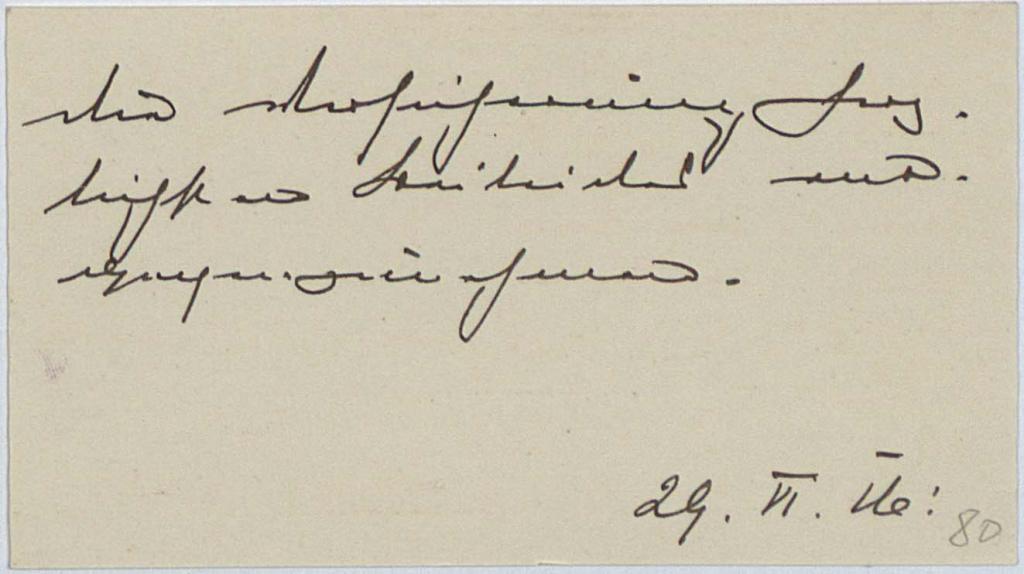 die Versicherung herz-
lichsten Beileides ent-
gegenzunehmen.
29. VI.
80